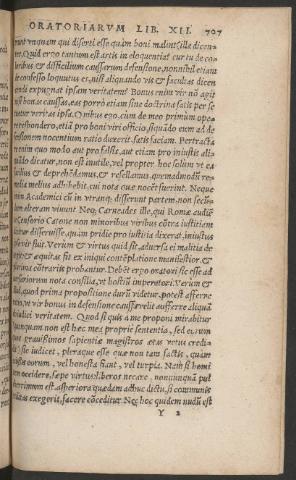 ORATORIARVM LIB. XII. 707
runt vnquam qui diserti esse quàm boni malint) illa dicen-
Quid ergo tantum est artis in eloquentia? cur tu de co-
loribus & difficilium caussarum defensione, nonnihil etiam
de confessio loquutus es, nisi aliquando vis & facultas dicen
di expugnat ipsam veritatem? Bonus enim vir nō agit
nisi bonas caussas, eas porrò etiam sine doctrina satis per se
tuetur veritas ipsa. Quibus ego, cum de meo primùm ope-
re respondero, etiā pro boni viri officio, si quādo eum ad de-
fensionem nocentium ratio duxerit, satisfaciam. Pertracta
re enim quo modo aut pro falsis, aut etiam pro iniustis ali-
quādo dicatur, non est inutile, vel propter hoc solùm vt ea
& deprehēdamus, & refellamus, quemadmodū re-
media melius adhibebit, cui nota quæ nocēt fuerint. Neque
enim Academici cū in vtranq; disserunt partem, non secūd-
alteram viuunt. Neq; Carneades ille, qui Romæ audiē-
te Censorio Catone non minoribus viribus cōtra iustitiam
dicitur disseruisse, quàm pridie pro iustitia dixerat, iniustus
ipse vir fuit. Verùm & virtus quid sit, aduersa ei malitia de-
tegit & æquitas fit ex iniqui contēplatione manifestior, &
plurima cōtrariis probantur. Debēt ergo oratori sic esse ad-
uersariorum nota consilia, vt hostiū imperatori. Verum &
illud, quod prima propositione durū videtur, potest afferre
ratio, vt vir bonus in defensione caussæ velit auferre aliquā-
iudici veritatem. Quod si quis à me proponi mirabitur
quanquam non est hæc mea propriè sententia, sed eorum
quos grauissimos sapientiæ magistros ætas vetus credi-
dit) sic iudicet, pleraque esse quæ non tam factis, quàm
caussis eorum, vel honesta fiant, vel turpia. Nam si homi
nem occidere, sæpe virtus: liberos necare, nonnunquā pul
cherrimum est: asperiora quædam adhuc dictu, si communis
vtilitas exegerit, facere cōceditur. Neq; hoc quidem nudū est
Y 2